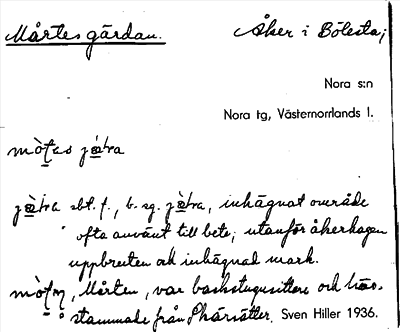 Mårtesgärdan. Åker i Bölesta;
Nora s:n
Nora tg, Västernorrlands l.
mòtas jætra
jætra sbt. f., b. sg. jætra, inhägnat område
ofta använt till bete; utanför åkerhagen
uppbruten och inhägnad mark.
Mårten, var backstugusittare och här-
stammade från Sven Hiller 1936.